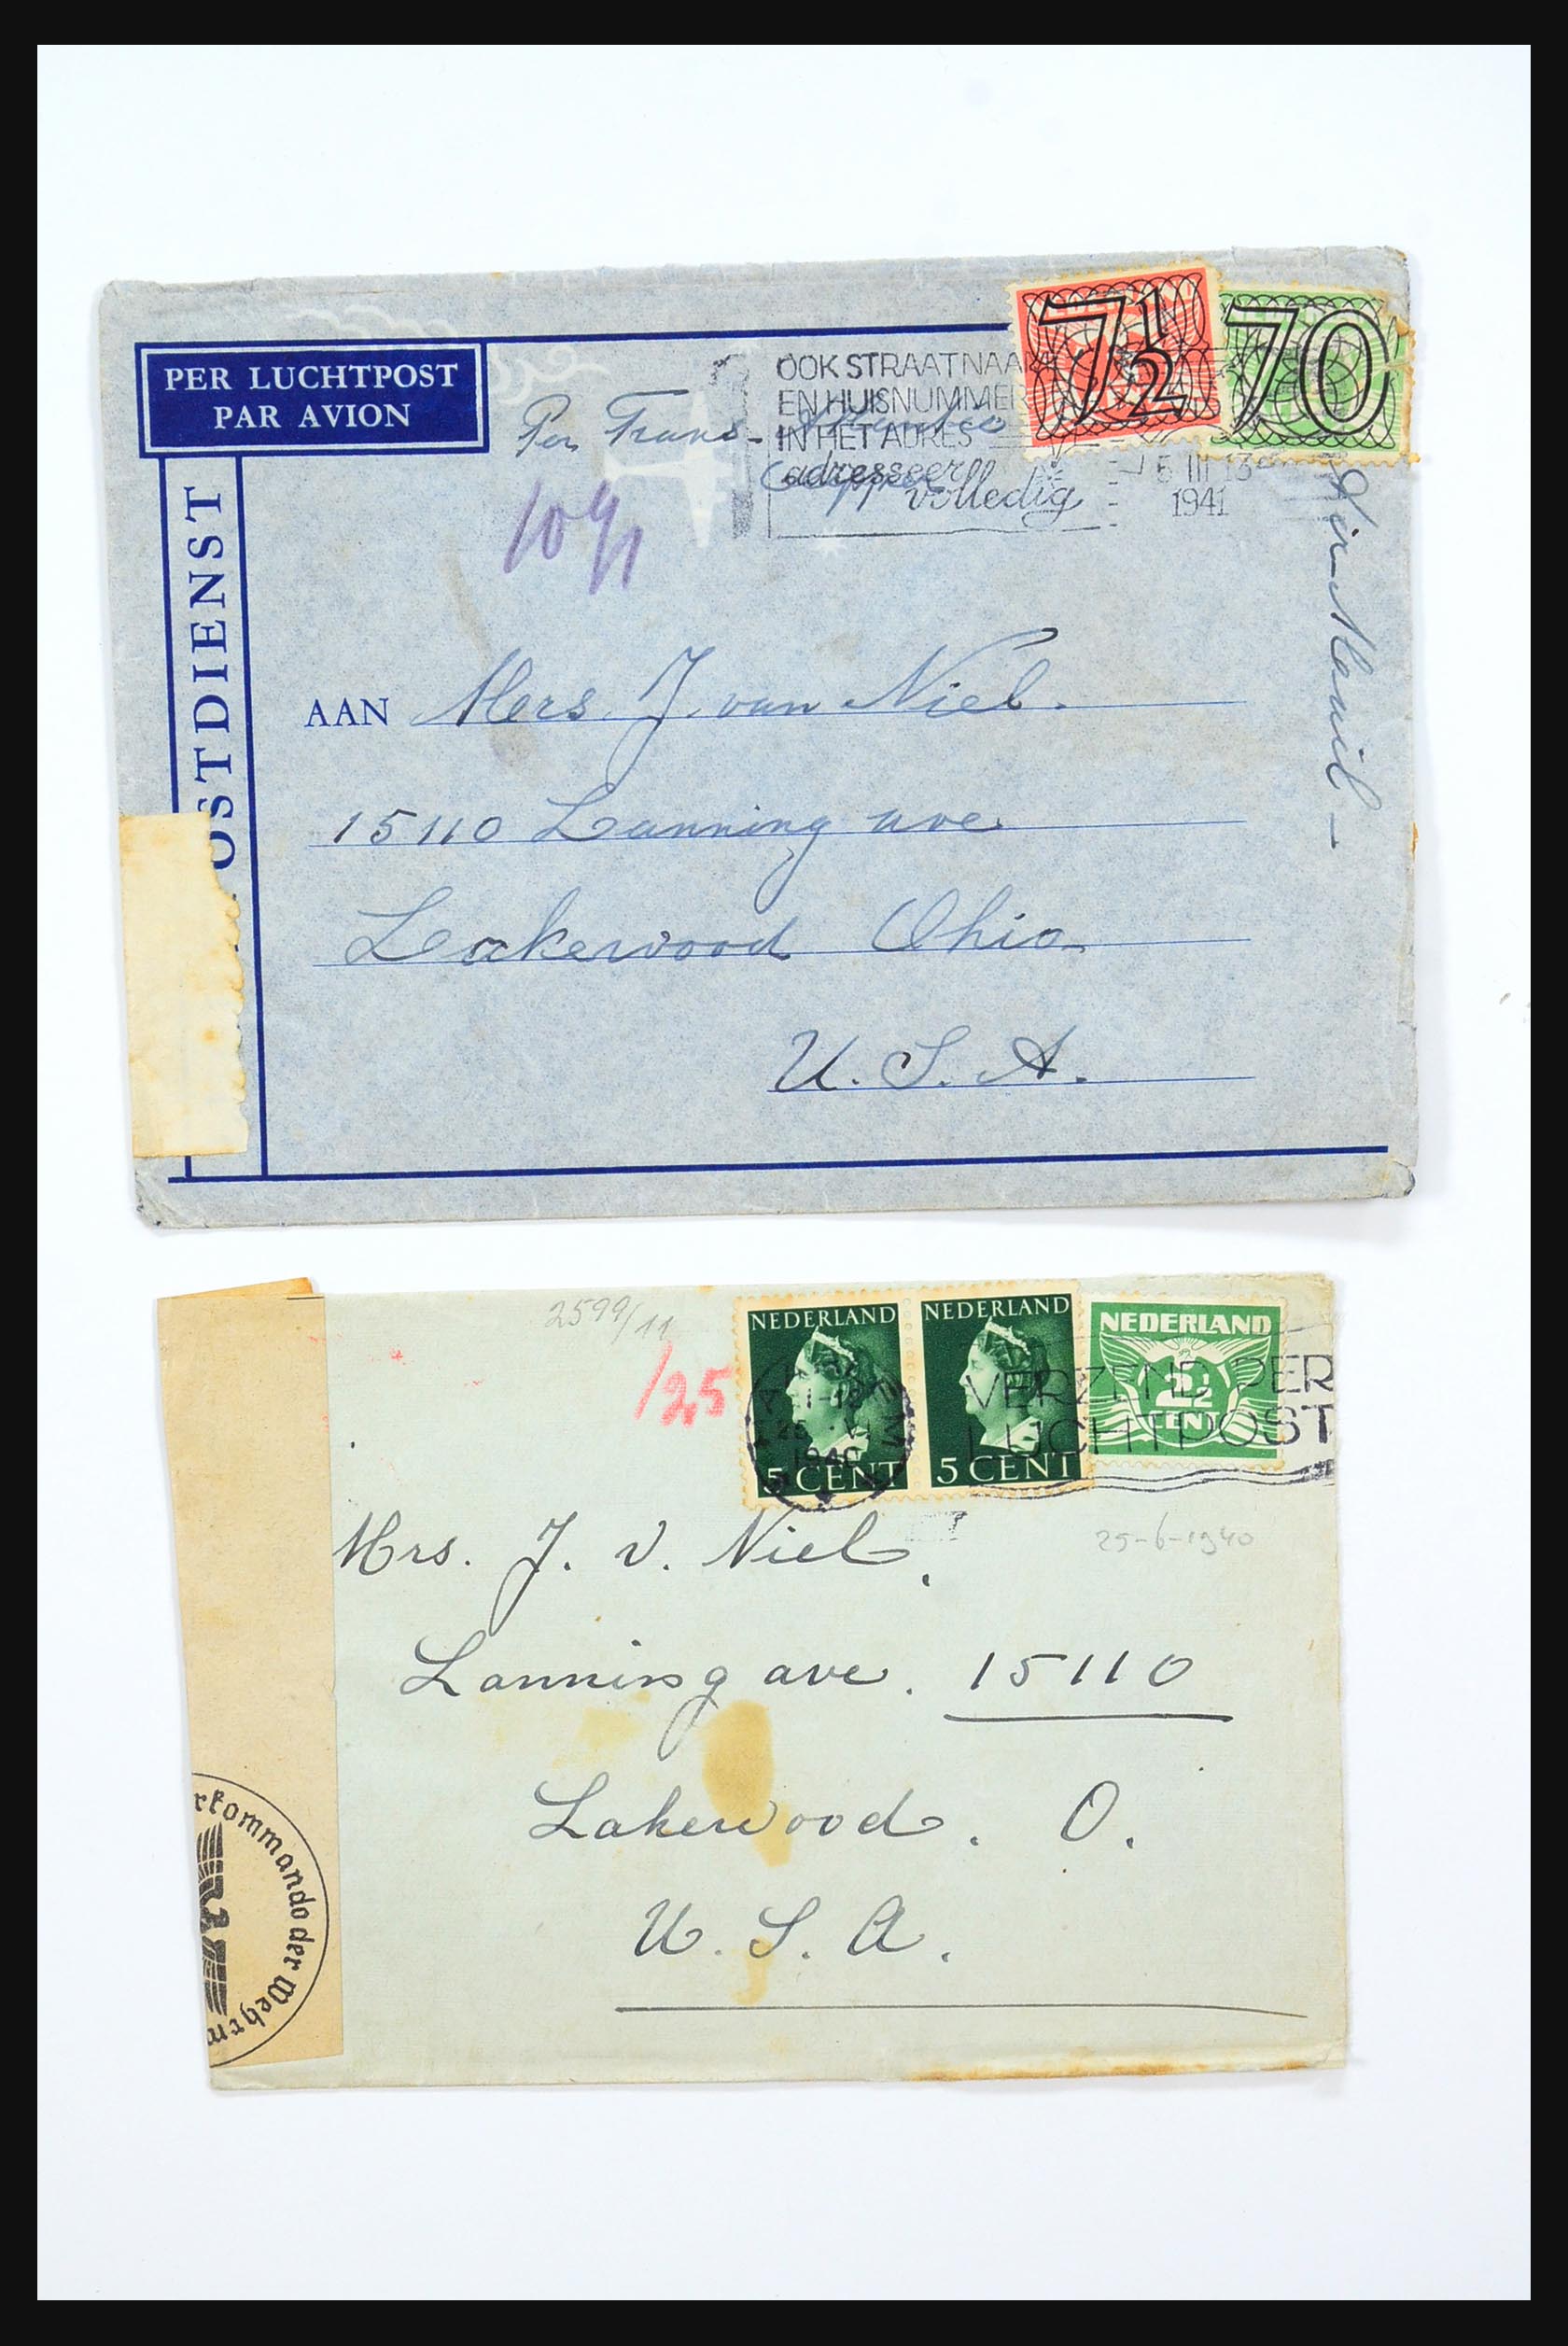 PER LUCHTPOST
PAR AVION
OSTDIENST
Per Trans-Atlantic
Clipper
OOK STRAATNAAM
EN HUISNUMMER
IN HET ADRES
adresseer
volledig
5 III 13
1941
7½
70
Air Mail -
10 gr
AAN Mers J. van Niel.
15110 Lanning ave
Lackerwood Ohio
U. S. A.
2599/11
/25
NEDERLAND
5 CENT
NEDERLAND
5 CENT
NEDERLAND
2½
CENT
1940
VERZEND PER
LUCHTPOST
25-6-1940
Mrs. J. v. Niel.
Lanning ave. 15110
Lakewood. O.
U. S. A.
rkommando der Wehrm